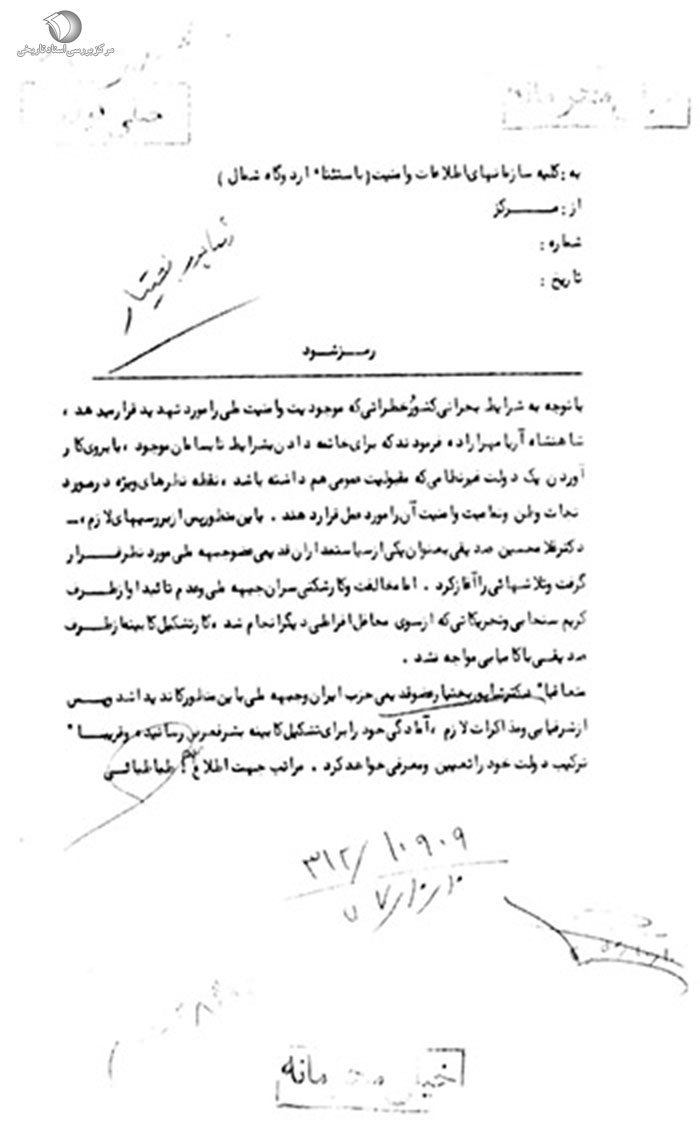 مرکز بررسی اسناد تاریخی
به : کلیه سازمانهای اطلاعات و امنیت (باستثناء اردوگاه شمال )
از : مرکز
شماره :
تاریخ :
شاپور بختیار
رمز شود
با توجه به شرایط بحرانی کشور خطراتی که موجودیت و امنیت ملی را مورد تهدید قرار میدهد ،
شاهنشاه آریامهر اراده فرمودند که برای خاتمه دادن بشرایط نابسامان موجود ، با بروی کار
آوردن یک دولت غیرنظامی که مقبولیت عمومی هم داشته باشد ، نقطه نظرهای ویژه در مورد
نجات وطن و تمامیت و امنیت آن را مورد عمل قرار دهند . باین منظور پس از بررسیهای لازم ،
دکتر غلامحسین صدیقی بعنوان یکی از سیاستمداران قدیمی عضو جبهه ملی مورد نظر قرار
گرفت و تلاشهائی را آغاز کرد . اما مخالفت و کارشکنی سران جبهه ملی و عدم تائید او از طرف
کریم سنجابی و تحریکاتی که از سوی محافل افراطی دیگر انجام شد ، کار تشکیل کابینه از طرف
صدیقی با کامیابی مواجه نشد .
متعاقباً دکتر شاپور بختیار عضو قدیمی حزب ایران و جبهه ملی باین منظور کاندید شد و پس
از شرفیابی و مذاکرات لازم ، آمادگی خود را برای تشکیل کابینه بشرفعرض رسانیده و قریباً
ترکیب دولت خود را تعیین و معرفی خواهد کرد . مراتب جهت اطلاع . طباطبائی
۳۱۲/۱۰۹۰۹
خیلی محرمانه